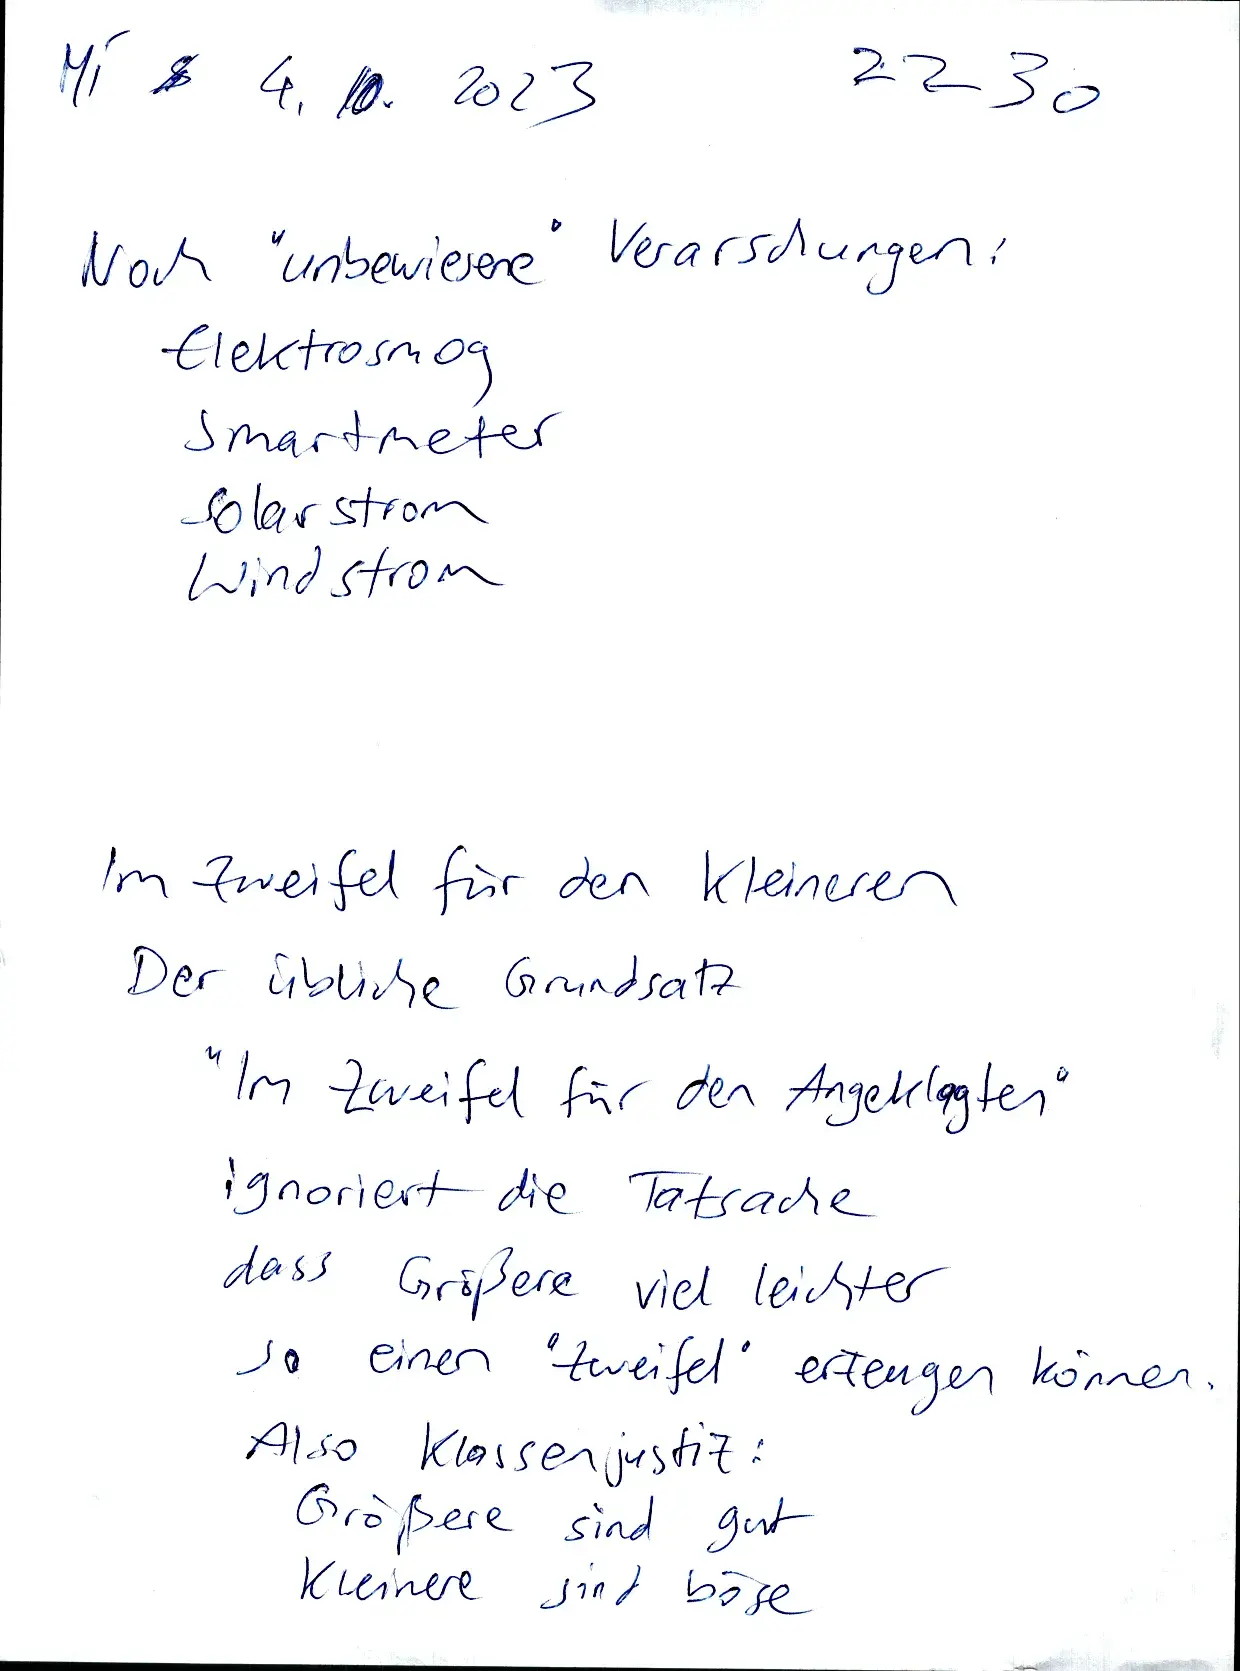 Mi 4. 10. 2023 22 30
Noch "unbewiesene" Verarschungen:
Elektrosmog
Smartmeter
Solarstrom
Windstrom
Im Zweifel für den Kleineren
Der übliche Grundsatz
"Im Zweifel für den Angeklagten"
ignoriert die Tatsache
dass Größere viel leichter
so einen "Zweifel" erzeugen können.
Also Klassenjustiz:
Größere sind gut
Kleinere sind böse